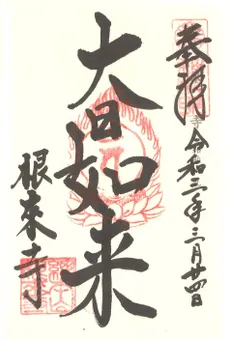 奉拝
令和三年三月廿四日
大日如来
根来寺